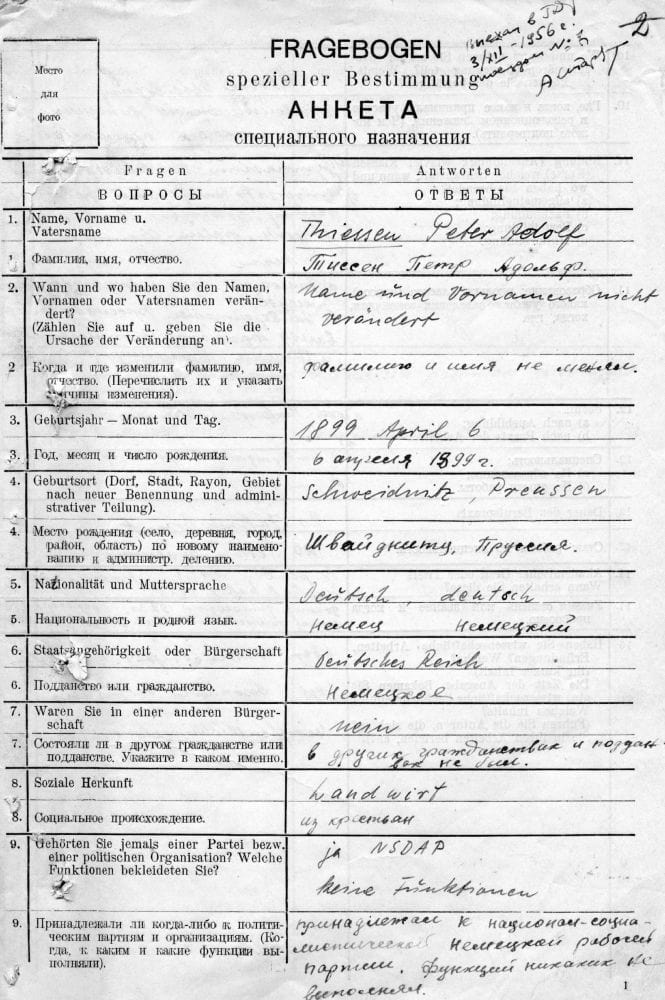 выехал в ГДР
3/XII-1956 г.
поездом №
2
FRAGEBOGEN
spezieller Bestimmung
АНКЕТА
специального назначения
Место
для
фото
Fragen
ВОПРОСЫ
Antworten
ОТВЕТЫ
1. Name, Vorname u.
Vatersname
Thiessen Peter Adolf
Фамилия, имя, отчество.
Тиссен Петр Адольф.
2. Wann und wo haben Sie den Namen,
Vornamen oder Vatersnamen verän-
dert?
(Zählen Sie auf u. geben Sie die
Ursache der Veränderung an).
Name und Vornamen nicht
verändert
2 Когда и где изменили фамилию, имя,
отчество. (Перечислить их и указать
причины изменения).
фамилию и имя не менял.
3. Geburtsjahr — Monat und Tag.
1899 April 6
3. Год, месяц и число рождения.
6 апреля 1899 г.
4. Geburtsort (Dorf, Stadt, Rayon, Gebiet
nach neuer Benennung und admini-
strativer Teilung).
Schweidnitz, Preussen
4. Место рождения (село, деревня, город,
район, область) по новому наимено-
ванию и администр. делению.
Швайднитц, Пруссия.
5. Nationalität und Muttersprache
Deutsch, deutsch
5. Национальность и родной язык.
Немец немецкий
6. Staatsangehörigkeit oder Bürgerschaft
Deutsches Reich
6. Подданство или гражданство.
Немецкое
7. Waren Sie in einer anderen Bürger-
schaft
nein
7. Состояли ли в другом гражданстве или
подданстве. Укажите в каком именно.
в других гражданствах и поддан-
вах не был.
8. Soziale Herkunft
Landwirt
8. Социальное происхождение.
из крестьян
9. Gehörten Sie jemals einer Partei bezw.
einer politischen Organisation? Welche
Funktionen bekleideten Sie?
ja NSDAP
keine Funktionen
9. Принадлежали ли когда-либо к полити-
ческим партиям и организациям. (Ко-
гда, к каким и какие функции вы-
полняли).
принадлежал к национал-социа-
листической немецкой рабочей
партии. функций никаких не
выполнял.
1